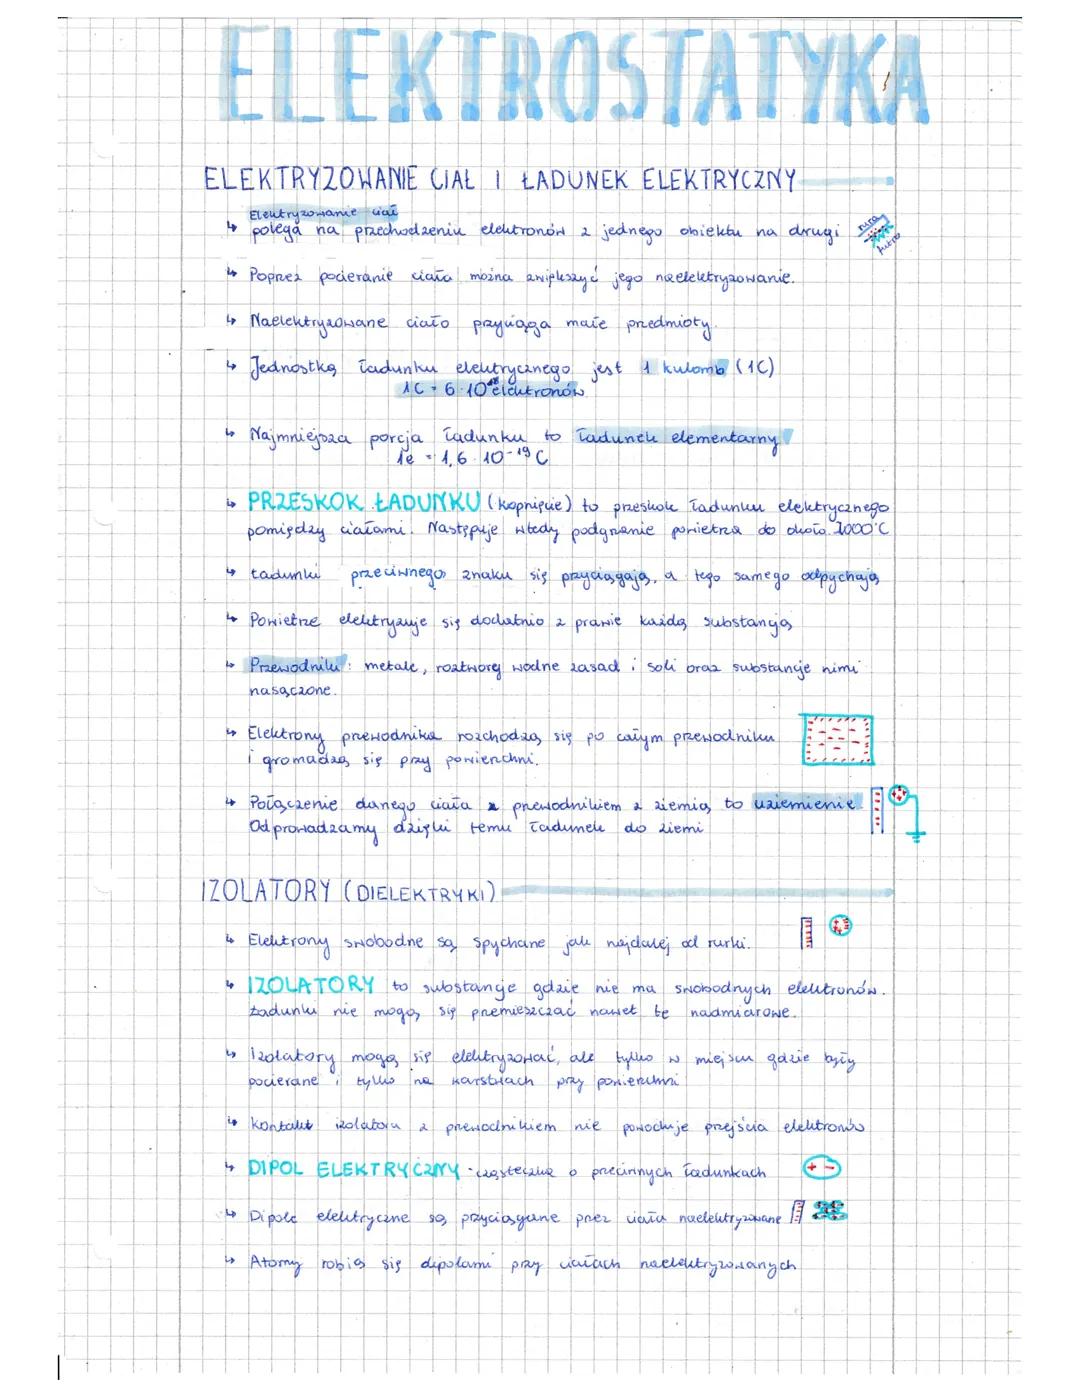 ELEKTROSTATYKA
ELEKTRYZOWANIE CIAŁ I ŁADUNEK ELEKTRYCZNY
Elektryzowanie ciał
↳ polega na przechodzeniu elektronów z jednego obiektu na drugi
rura
futro
↳ Poprzez pocieranie ciała można zwiększyć jego naelektryzowanie.
↳ Naelektryzowane ciało przyciąga małe przedmioty.
↳ Jednostką ładunku elektrycznego jest 1 kulomb (1C)
1C = 6·10¹⁸ elektronów
↳ Najmniejsza porcja ładunku to ładunek elementarny
1e = 1,6·10⁻¹⁹ C
↳ PRZESKOK ŁADUNKU (kopnięcie) to przeskok ładunku elektrycznego
pomiędzy ciałami. Następuje wtedy podgrzanie powietrza do około 1000°C
↳ Ładunki przeciwnego znaku się przyciągają, a tego samego odpychają
↳ Powietrze elektryzuje się dodatnio z prawie każdą substancją
↳ Przewodniki: metale, roztwory wodne zasad i soli oraz substancje nimi
nasączone.
↳ Elektrony przewodnika rozchodzą się po całym przewodniku
i gromadzą się przy powierzchni.
↳ Połączenie danego ciała z przewodnikiem z ziemią to uziemienie.
Odprowadzamy dzięki temu ładunek do ziemi
IZOLATORY (DIELEKTRYKI)
↳ Elektrony swobodne są spychane jak najdalej od rurki.
↳ IZOLATORY to substancje gdzie nie ma swobodnych elektronów.
Ładunki nie mogą się przemieszczać nawet te nadmiarowe.
↳ Izolatory mogą się elektryzować, ale tylko w miejscu gdzie były
pocierane i tylko na warstwach przy powierzchni
↳ Kontakt izolatora z przewodnikiem nie powoduje przejścia elektronów
↳ DIPOL ELEKTRYCZNY - cząsteczka o przeciwnych ładunkach
+ -
↳ Dipole elektryczne są przyciągane przez ciała naelektryzowane
↳ Atomy robią się dipolami przy ciałach naelektryzowanych